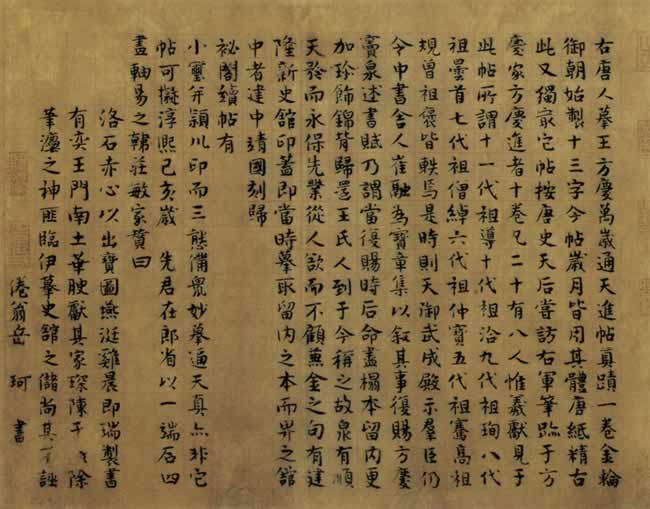 右唐人摹王方慶萬歲通天進帖真蹟一卷金輪
御朝始製十三字今帖歲月皆用其體唐紙精古
此又獨最它帖按唐史天后嘗訪右軍筆蹟于方
慶家方慶進者十卷凡二十有八人惟羲獻見于
此帖所謂十一代祖導十代祖洽九代祖珣八代
祖曇首七代祖僧綽六代祖仲寶五代祖騫高祖
規曾祖褒皆軼焉是時則天御武成殿示羣臣仍
令中書舍人崔融為寶章集以叙其事復賜方慶
竇泉述書賦乃謂當復賜時后命盡榻本留内更
加珍飾錦背歸還王氏人到于今稱之故泉有順
天矜而永保先業從人欲而不顧兼金之句有建
隆新史館印蓋即當時摹取留内之本而畀之館
中者建中靖國刻歸
祕閣續帖有
小璽并潁川印而三態備衆妙摹通天真亦非它
帖可擬淳熙己亥歲 先君在郎省以一端石四
畫軸易之韓莊敏家贊曰
洛石赤心以出寶圖燕涎雞晨即瑞製書
有奕王門南土華腴獻其家琛陳于除
筆瀍之神匪臨伊摹史館之儲尚其誣
倦翁岳 珂 書